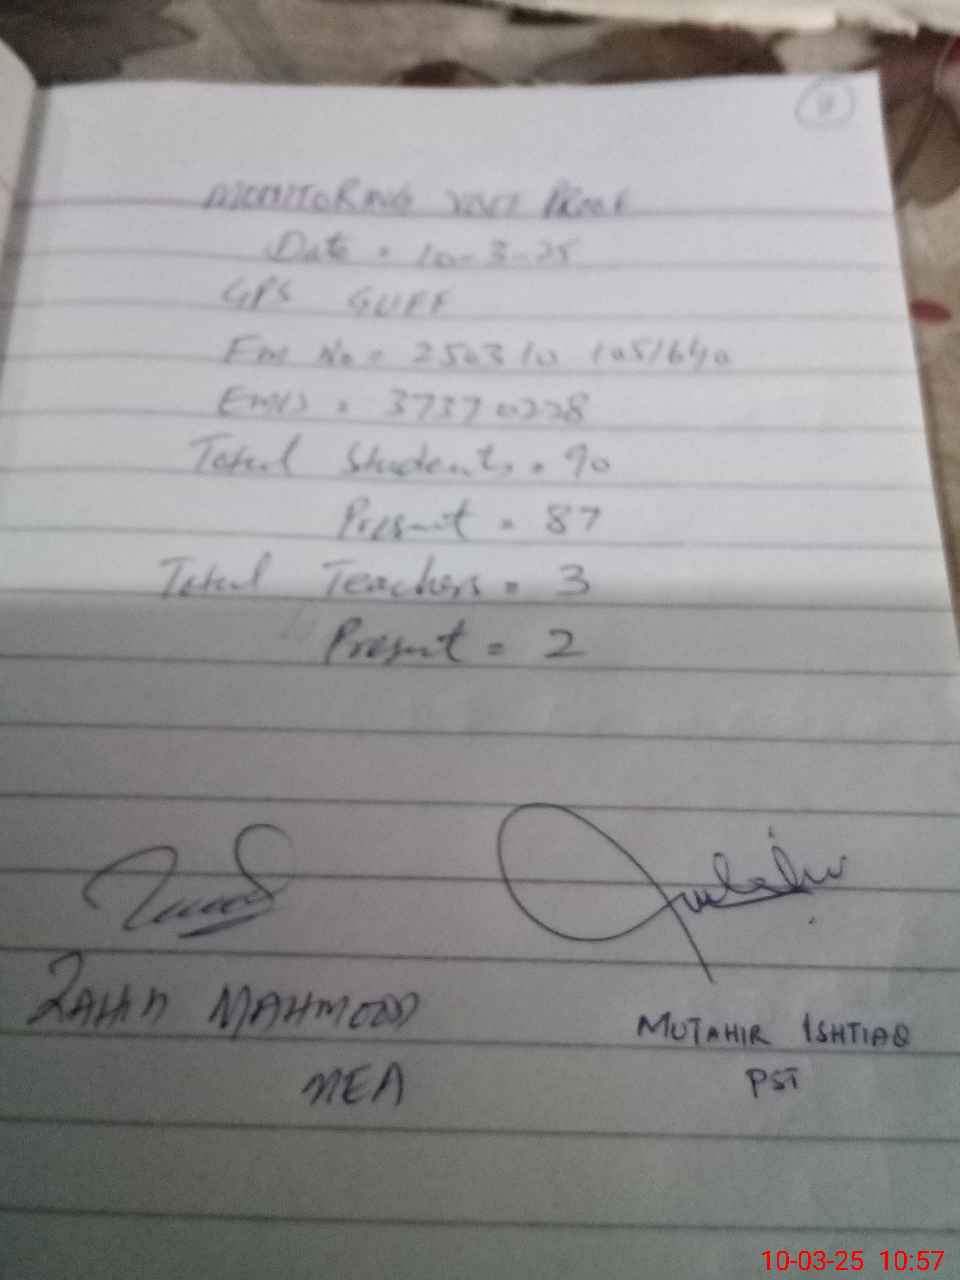 MONITORING VISIT PROOF
Date = 10-3-25
GPS GUFF
Em No = 250310 1051640
EMIS = 37370228
Total Students = 90
Present = 87
Total Teachers = 3
Present = 2
ZAHID MAHMOOD
MEA
MUTAHIR ISHTIAQ
PST
10-03-25 10:57